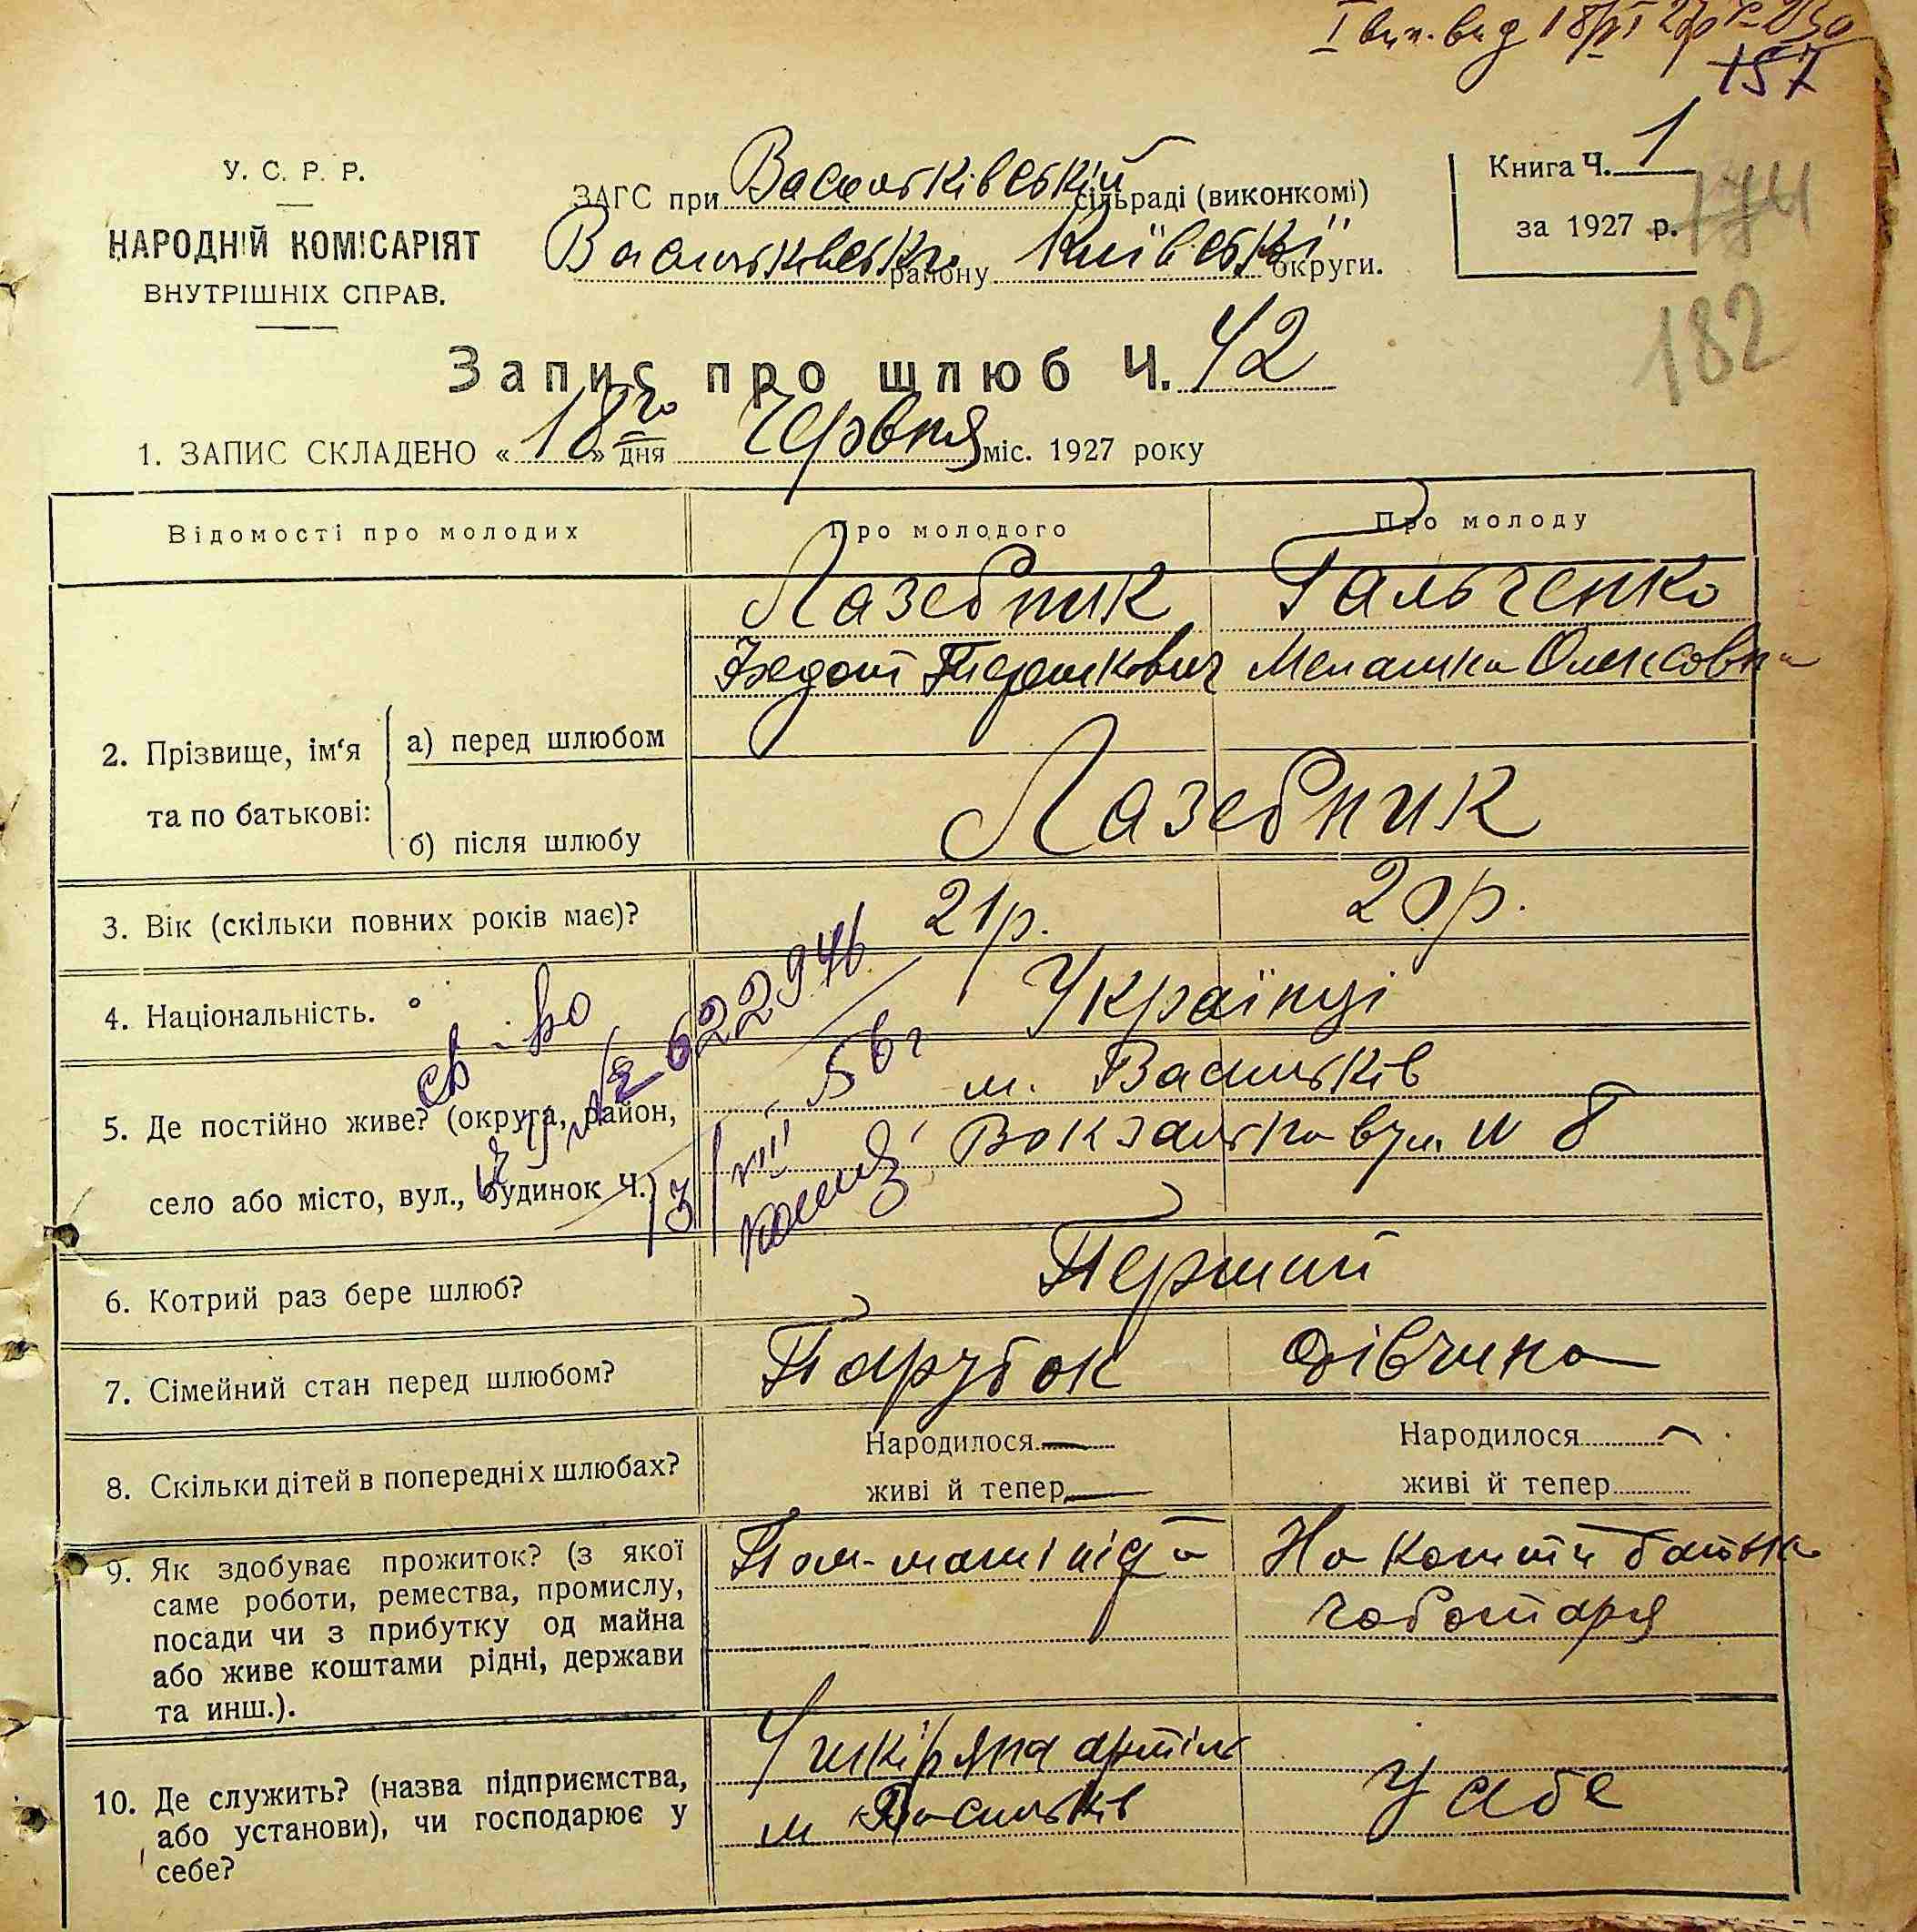 157
У. С. Р. Р.
НАРОДНІЙ КОМІСАРІЯТ
ВНУТРІШНІХ СПРАВ.
ЗАГС при Васильківській сільраді (виконкомі)
Васильківськ району Київської округи.
Книга Ч. 1
за 1927 р.
174
182
Запис про шлюб Ч. 42
1. ЗАПИС СКЛАДЕНО « 18го » дня Червня міс. 1927 року
Відомості про молодих
Про молодого
Про молоду
2. Прізвище, ім‘я та по батькові:
а) перед шлюбом
Лазебник
Гальченко
Меланка Олексовна
б) після шлюбу
Лазебник
3. Вік (скільки повних років має)?
21р.
20р.
4. Національність.
Українці
5. Де постійно живе? (округа, район,
село або місто, вул., будинок Ч.)
м. Васильків
Вокзальна вул. № 8
св-во
№ 622946
13/VIII 56 г
6. Котрий раз бере шлюб?
Перший
7. Сімейний стан перед шлюбом?
Парубок
дівчина
8. Скільки дітей в попередніх шлюбах?
Народилося
живі й тепер
Народилося
живі й тепер
9. Як здобуває прожиток? (з якої
саме роботи, ремества, промислу,
посади чи з прибутку од майна
або живе коштами рідні, держави
та инш.).
На кошти батька
чоботаря
10. Де служить? (назва підприємства,
або установи), чи господарює у
себе?
У шкіряна артіль
м Васильків
У себе